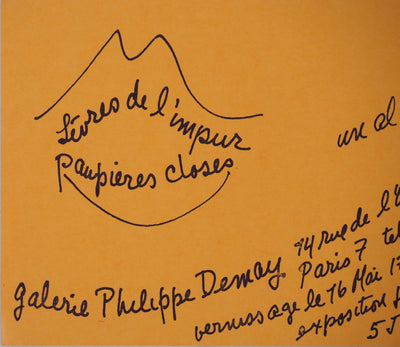 Lèvres de l'impur
Paupières closes
un al
Galerie Philippe Demay 14 rue de l'
Paris 7 tel
vernissage le 16 Mai 17
exposition
5 J